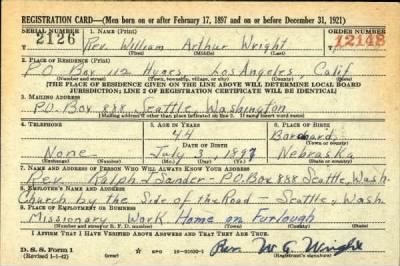 REGISTRATION CARD—(Men born on or after February 17, 1897 and on or before December 31, 1921)
SERIAL NUMBER 1. NAME (Print) ORDER NUMBER
2126 Rev. William Arthur Wright 12148
(First) (Middle) (Last)
2. PLACE OF RESIDENCE (Print)
P.O. Box 112 Los Angeles, Calif.
(Number and street) (Town, township, village, or city) (County) (State)
[THE PLACE OF RESIDENCE GIVEN ON THE LINE ABOVE WILL DETERMINE LOCAL BOARD
JURISDICTION; LINE 2 OF REGISTRATION CERTIFICATE WILL BE IDENTICAL]
3. MAILING ADDRESS
P.O. Box 888 Seattle, Washington
[Mailing address if other than place indicated on line 2. If same insert word same]
4. TELEPHONE 5. AGE IN YEARS 6. PLACE OF BIRTH
44
DATE OF BIRTH (Town or county)
None July 3, 1897 Nebraska
(Exchange) (Number) (Mo.) (Day) (Yr.) (State or country)
7. NAME AND ADDRESS OF PERSON WHO WILL ALWAYS KNOW YOUR ADDRESS
Rev. Ralph Sander - P.O. Box 888 Seattle, Wash.
8. EMPLOYER'S NAME AND ADDRESS
Church by the Side of the Road - Seattle, Wash
9. PLACE OF EMPLOYMENT OR BUSINESS
Missionary Work Home on Furlough
(Number and street or R. F. D. number) (Town) (County) (State)
I AFFIRM THAT I HAVE VERIFIED ABOVE ANSWERS AND THAT THEY ARE TRUE.
D. S. S. Form 1
(Revised 1-1-42) (over) Rev. W. A. Wright
(Registrant's signature)